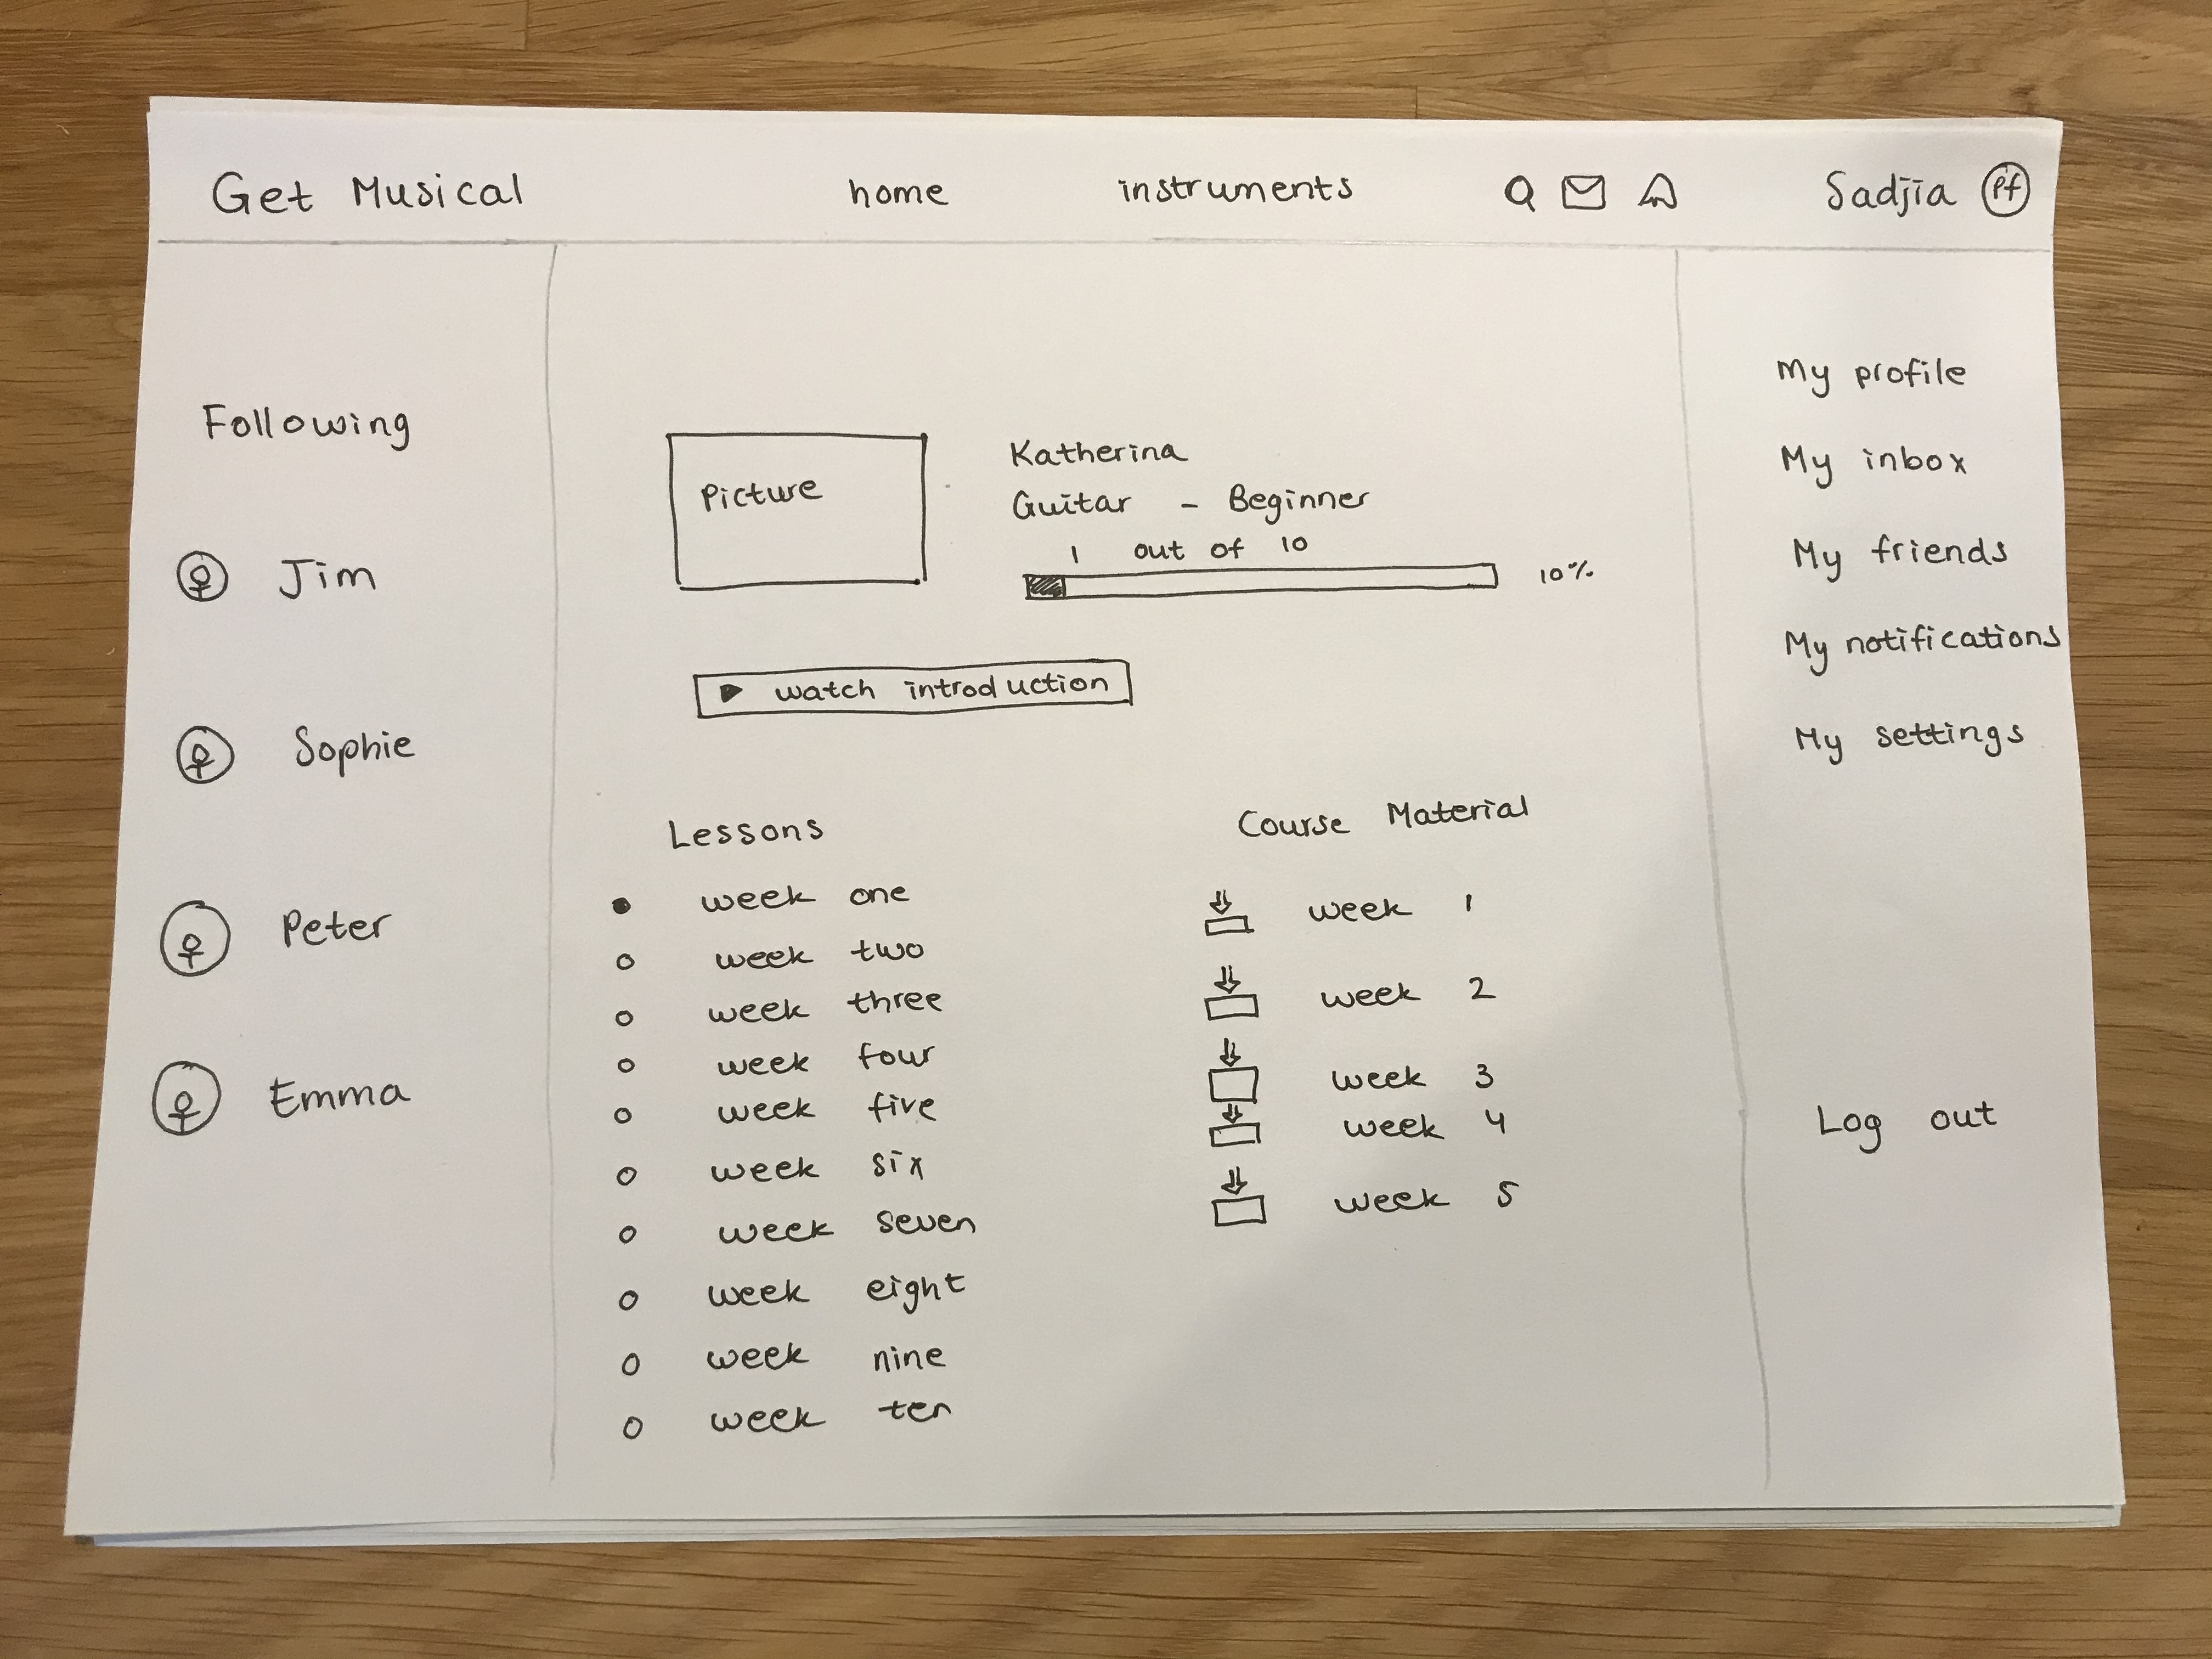 Get Musical home instruments Sadjia Pf
Following
Jim
Sophie
Peter
Emma
Picture
Katherina
Guitar - Beginner
1 out of 10
10%
watch introduction
Lessons
week one
week two
week three
week four
week five
week six
week seven
week eight
week nine
week ten
Course Material
week 1
week 2
week 3
week 4
week 5
My profile
My inbox
My friends
My notifications
My settings
Log out